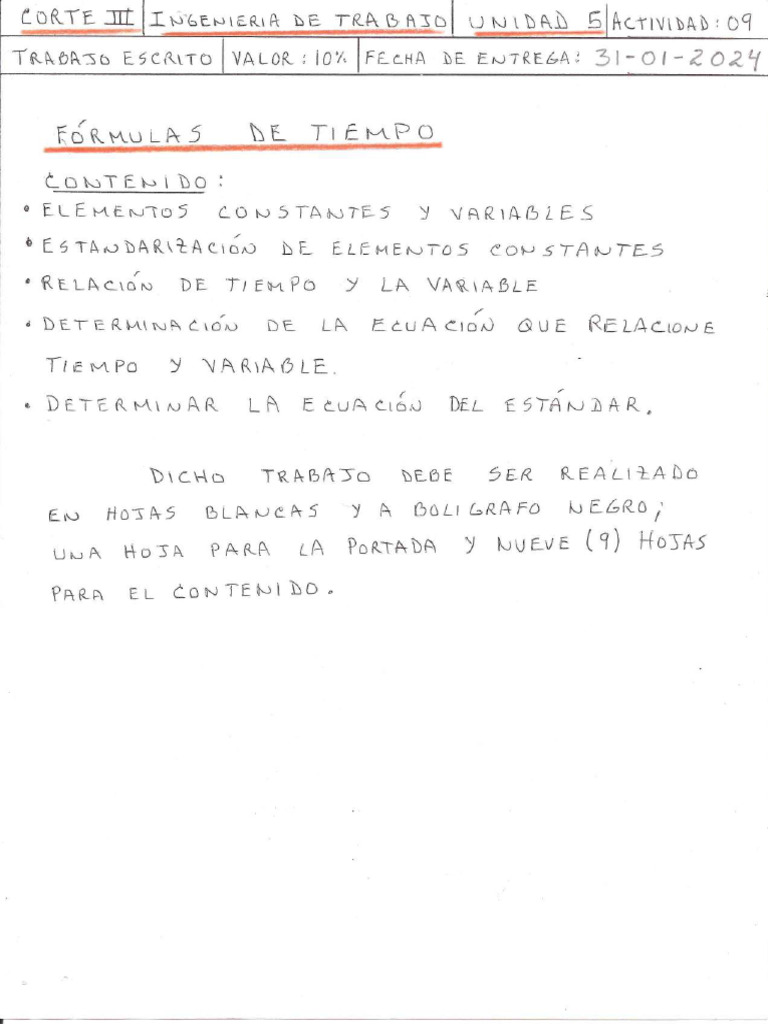 CORTE III INGENIERIA DE TRABAJO UNIDAD 5 ACTIVIDAD: 09
TRABAJO ESCRITO VALOR: 10% FECHA DE ENTREGA: 31-01-2024
FÓRMULAS DE TIEMPO
CONTENIDO:
• ELEMENTOS CONSTANTES Y VARIABLES
• ESTANDARIZACIÓN DE ELEMENTOS CONSTANTES
• RELACIÓN DE TIEMPO Y LA VARIABLE
• DETERMINACIÓN DE LA ECUACIÓN QUE RELACIONE
TIEMPO Y VARIABLE.
• DETERMINAR LA ECUACIÓN DEL ESTÁNDAR.
DICHO TRABAJO DEBE SER REALIZADO
EN HOJAS BLANCAS Y A BOLIGRAFO NEGRO;
UNA HOJA PARA LA PORTADA Y NUEVE (9) HOJAS
PARA EL CONTENIDO.